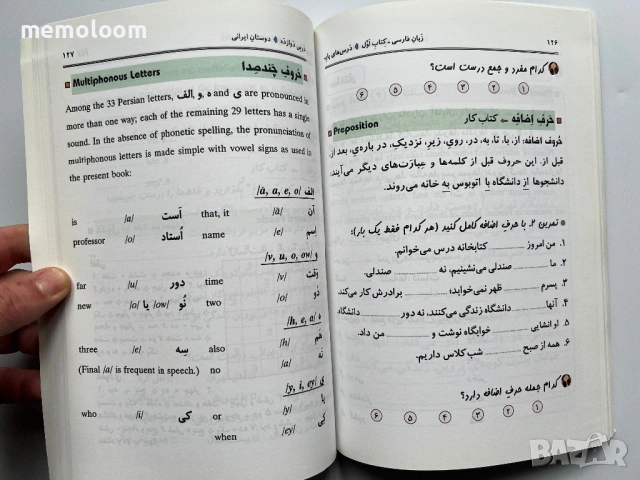 memoloom
۱۲۶
زبانِ فارسی - کتابِ اوّل ♦ درس‌های پایه
کدام مفرد و جمع درست است؟
① ② ③ ④ ⑤ ⑥
حَرفِ اِضافه – کتابِ کار
Preposition
حُروفِ اضافه: از، با، تا، به، در، روی، زیر، نزدیک، در باره‌ی، بعد از،
قبل از. این حروف قبل از کلمه‌ها و عِبارَت‌های دیگر می‌آیند:
دانشجوها از دانشگاه با اتوبوس به خانه می‌روند.
تمرین ۲. با حرفِ اضافه کامل کنید (هر کدام فقط یک بار):
۱. من امروز ........ کتابخانه درس می‌خوانم.
۲. ما ........ صندلی می‌نشینیم، نه ........ صندلی.
۳. پسرم ........ ظهر نمی‌خوابد؛ ........ برادرش کار می‌کند.
۴. آنها ........ دانشگاه زندگی می‌کنند، نه دور ........ دانشگاه
۵. او انشایی ........ خوابگاه نوشت و ........ من داد.
۶. همه از صبح ........ شب کلاس داریم.
کدام جمله حرفِ اضافه دارد؟
① ② ③ ④ ⑤ ⑥
درس دوازده ♦ دوستانِ ایرانی
۱۲۷
Multiphonous Letters
حُروفِ چَندصِدا
Among the 33 Persian letters, الف, و, ه and ی are pronounced in
more than one way; each of the remaining 29 letters has a single
sound. In the absence of phonetic spelling, the pronunciation of
multiphonous letters is made simple with vowel signs as used in
the present book:
الف /ā, a, e, o/
is /a/ اَست that, it /ā/ آن
professor /o/ اُستاد name /e/ اِسم
و /v, u, o, ow/
far /u/ دور time /v/ وَقت
new /o/ یا /ow/ نُو two /o/ دُو
ه /h, e, a/
three /e/ سِه also /h/ هَم
(Final /a/ is frequent in speech.) no /a/ نَه
ی /y, i, ey/
who /i/ کی or /y/ یا
when /ey/ کِی
BAZAR